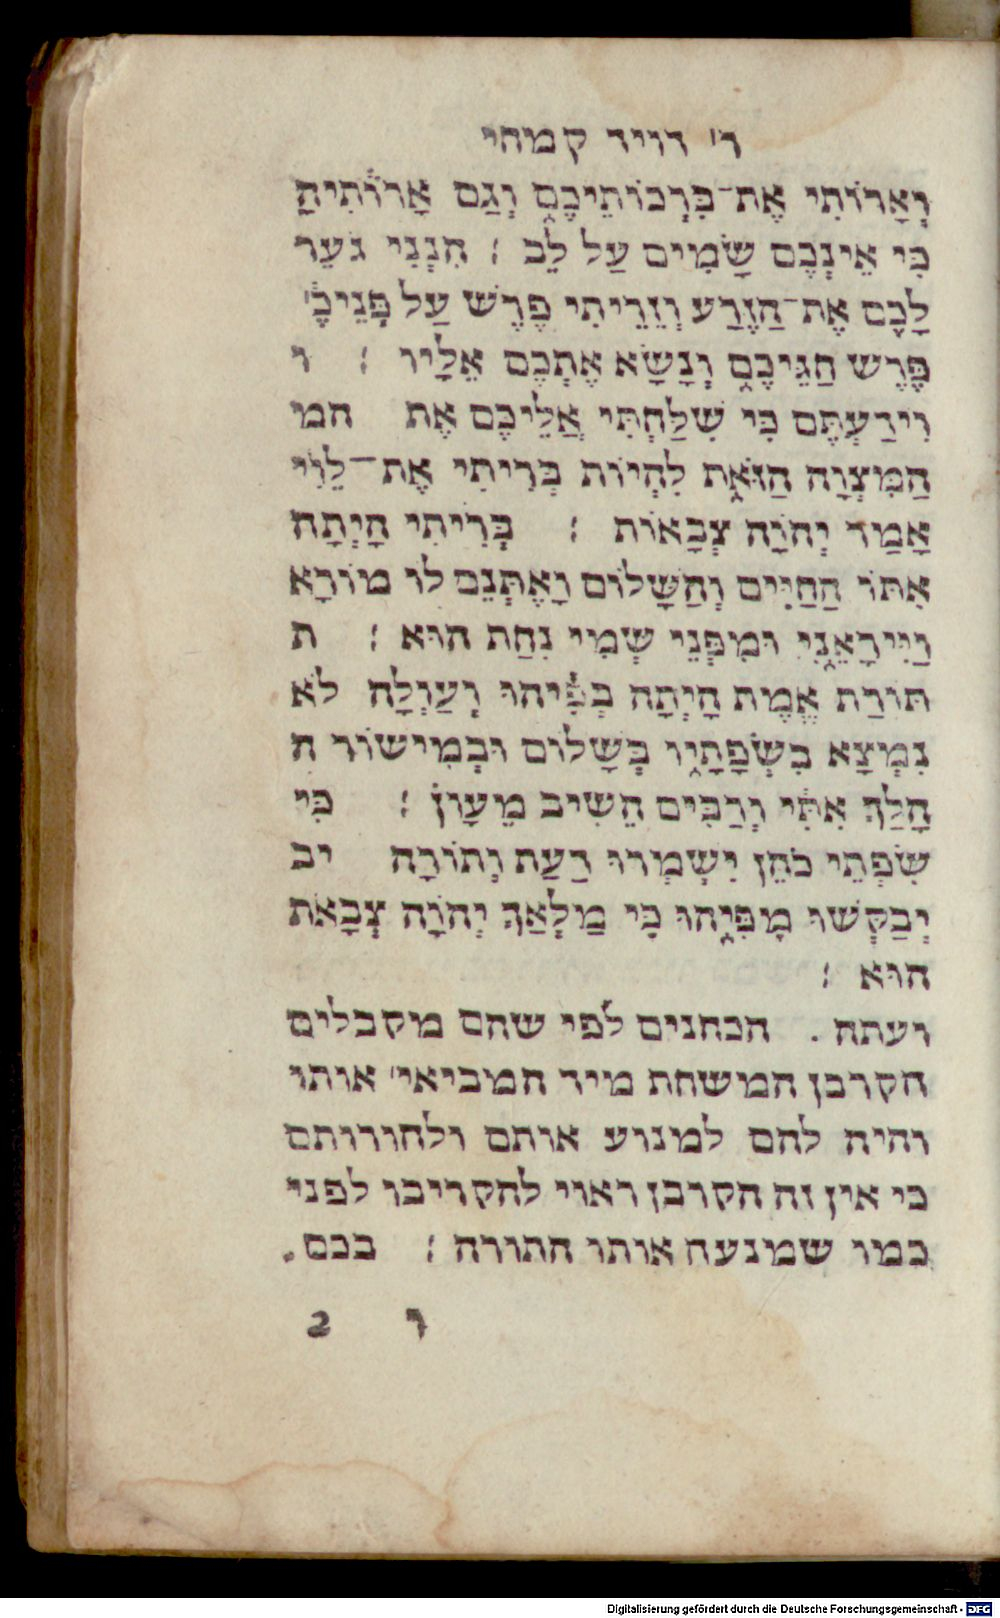 ר׳ דויד קמחי
וְאָרוֹתִי אֶת־בִּרְכוֹתֵיכֶם וְגַם אָרוֹתִיהָ
כִּי אֵינְכֶם שָׂמִים עַל לֵב ׃ הִנְנִי גֹעֵר
לָכֶם אֶת־הַזֶּרַע וְזֵרִיתִי פֶרֶשׁ עַל פְּנֵיכֶ׳
פֶּרֶשׁ חַגֵּיכֶם וְנָשָׂא אֶתְכֶם אֵלָיו ׃ ו
וִידַעְתֶּם כִּי שִׁלַּחְתִּי אֲלֵיכֶם אֶת המ
הַמִּצְוָה הַזּאֹת לִהְיוֹת בְּרִיתִי אֶת־לֵוִי
אָמַר יְהוָה צְבָאוֹת ׃ בְּרִיתִי הָיְתָה
אִתּוֹ הַחַיִּים וְהַשָּׁלוֹם וָאֶתְּנֵם לוֹ מוֹרָא
וַיִּירָאֵנִי וּמִפְּנֵי שְׁמִי נִחַת הוּא ׃ ת
תּוֹרַת אֱמֶת הָיְתָה בְּפִיהוּ וְעַוְלָה לֹא
נִמְצָא בִשְׂפָתָיו בְּשָׁלוֹם וּבְמִישׁוֹר ה
הָלַךְ אִתִּי וְרַבִּים הֵשִׁיב מֵעָוֹן ׃ כִּי
שִׂפְתֵי כֹהֵן יִשְׁמְרוּ דַעַת וְתוֹרָה יב
יְבַקְשׁוּ מִפִּיהוּ כִּי מַלְאַךְ יְהוָה צְבָאֹת
הוּא ׃
ועתה . הכהנים לפי שהם מקבלים
הקרבן המשחת מיד המביאי׳ אותו
והיה להם למנוע אותם ולהורותם
כי אין זה הקרבן ראוי להקריבו לפני
כמו שמנעה אותו התורה ׃ בכם.
ו 2
Digitalisierung gefördert durch die Deutsche Forschungsgemeinschaft - DFG